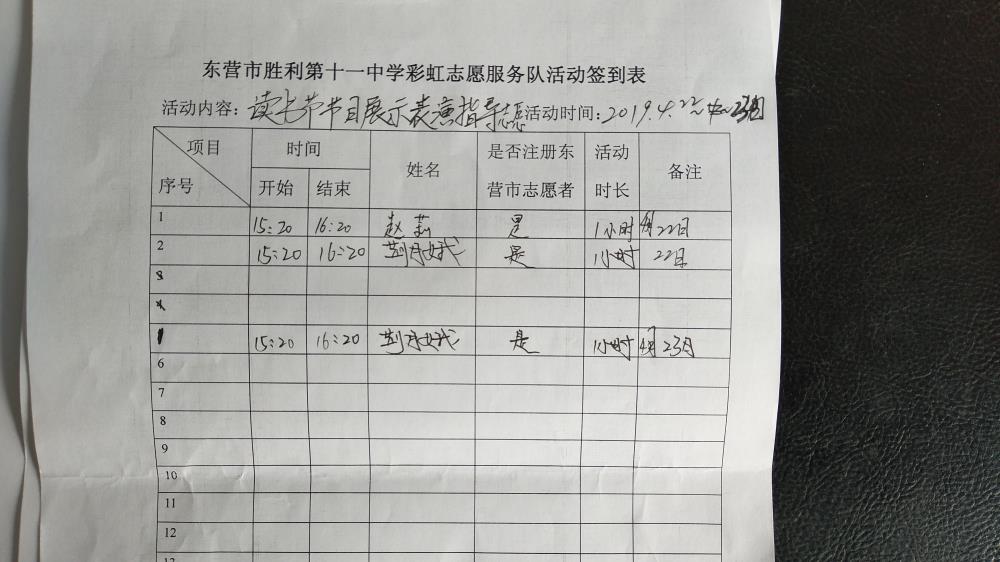 东营市胜利第十一中学彩虹志愿服务队活动签到表
活动内容：读书节节目展示表演指导 活动时间：2019.4.22~23日
项目 时间 姓名 是否注册东 活动 备注
序号 开始 结束 营市志愿者 时长
1 15:20 16:20 赵莉 是 1小时 4月22日
2 15:20 16:20 荆月娥 是 1小时 22日
3
4
1 15:20 16:20 荆月娥 是 1小时 4月23日
6
7
8
9
10
11
12